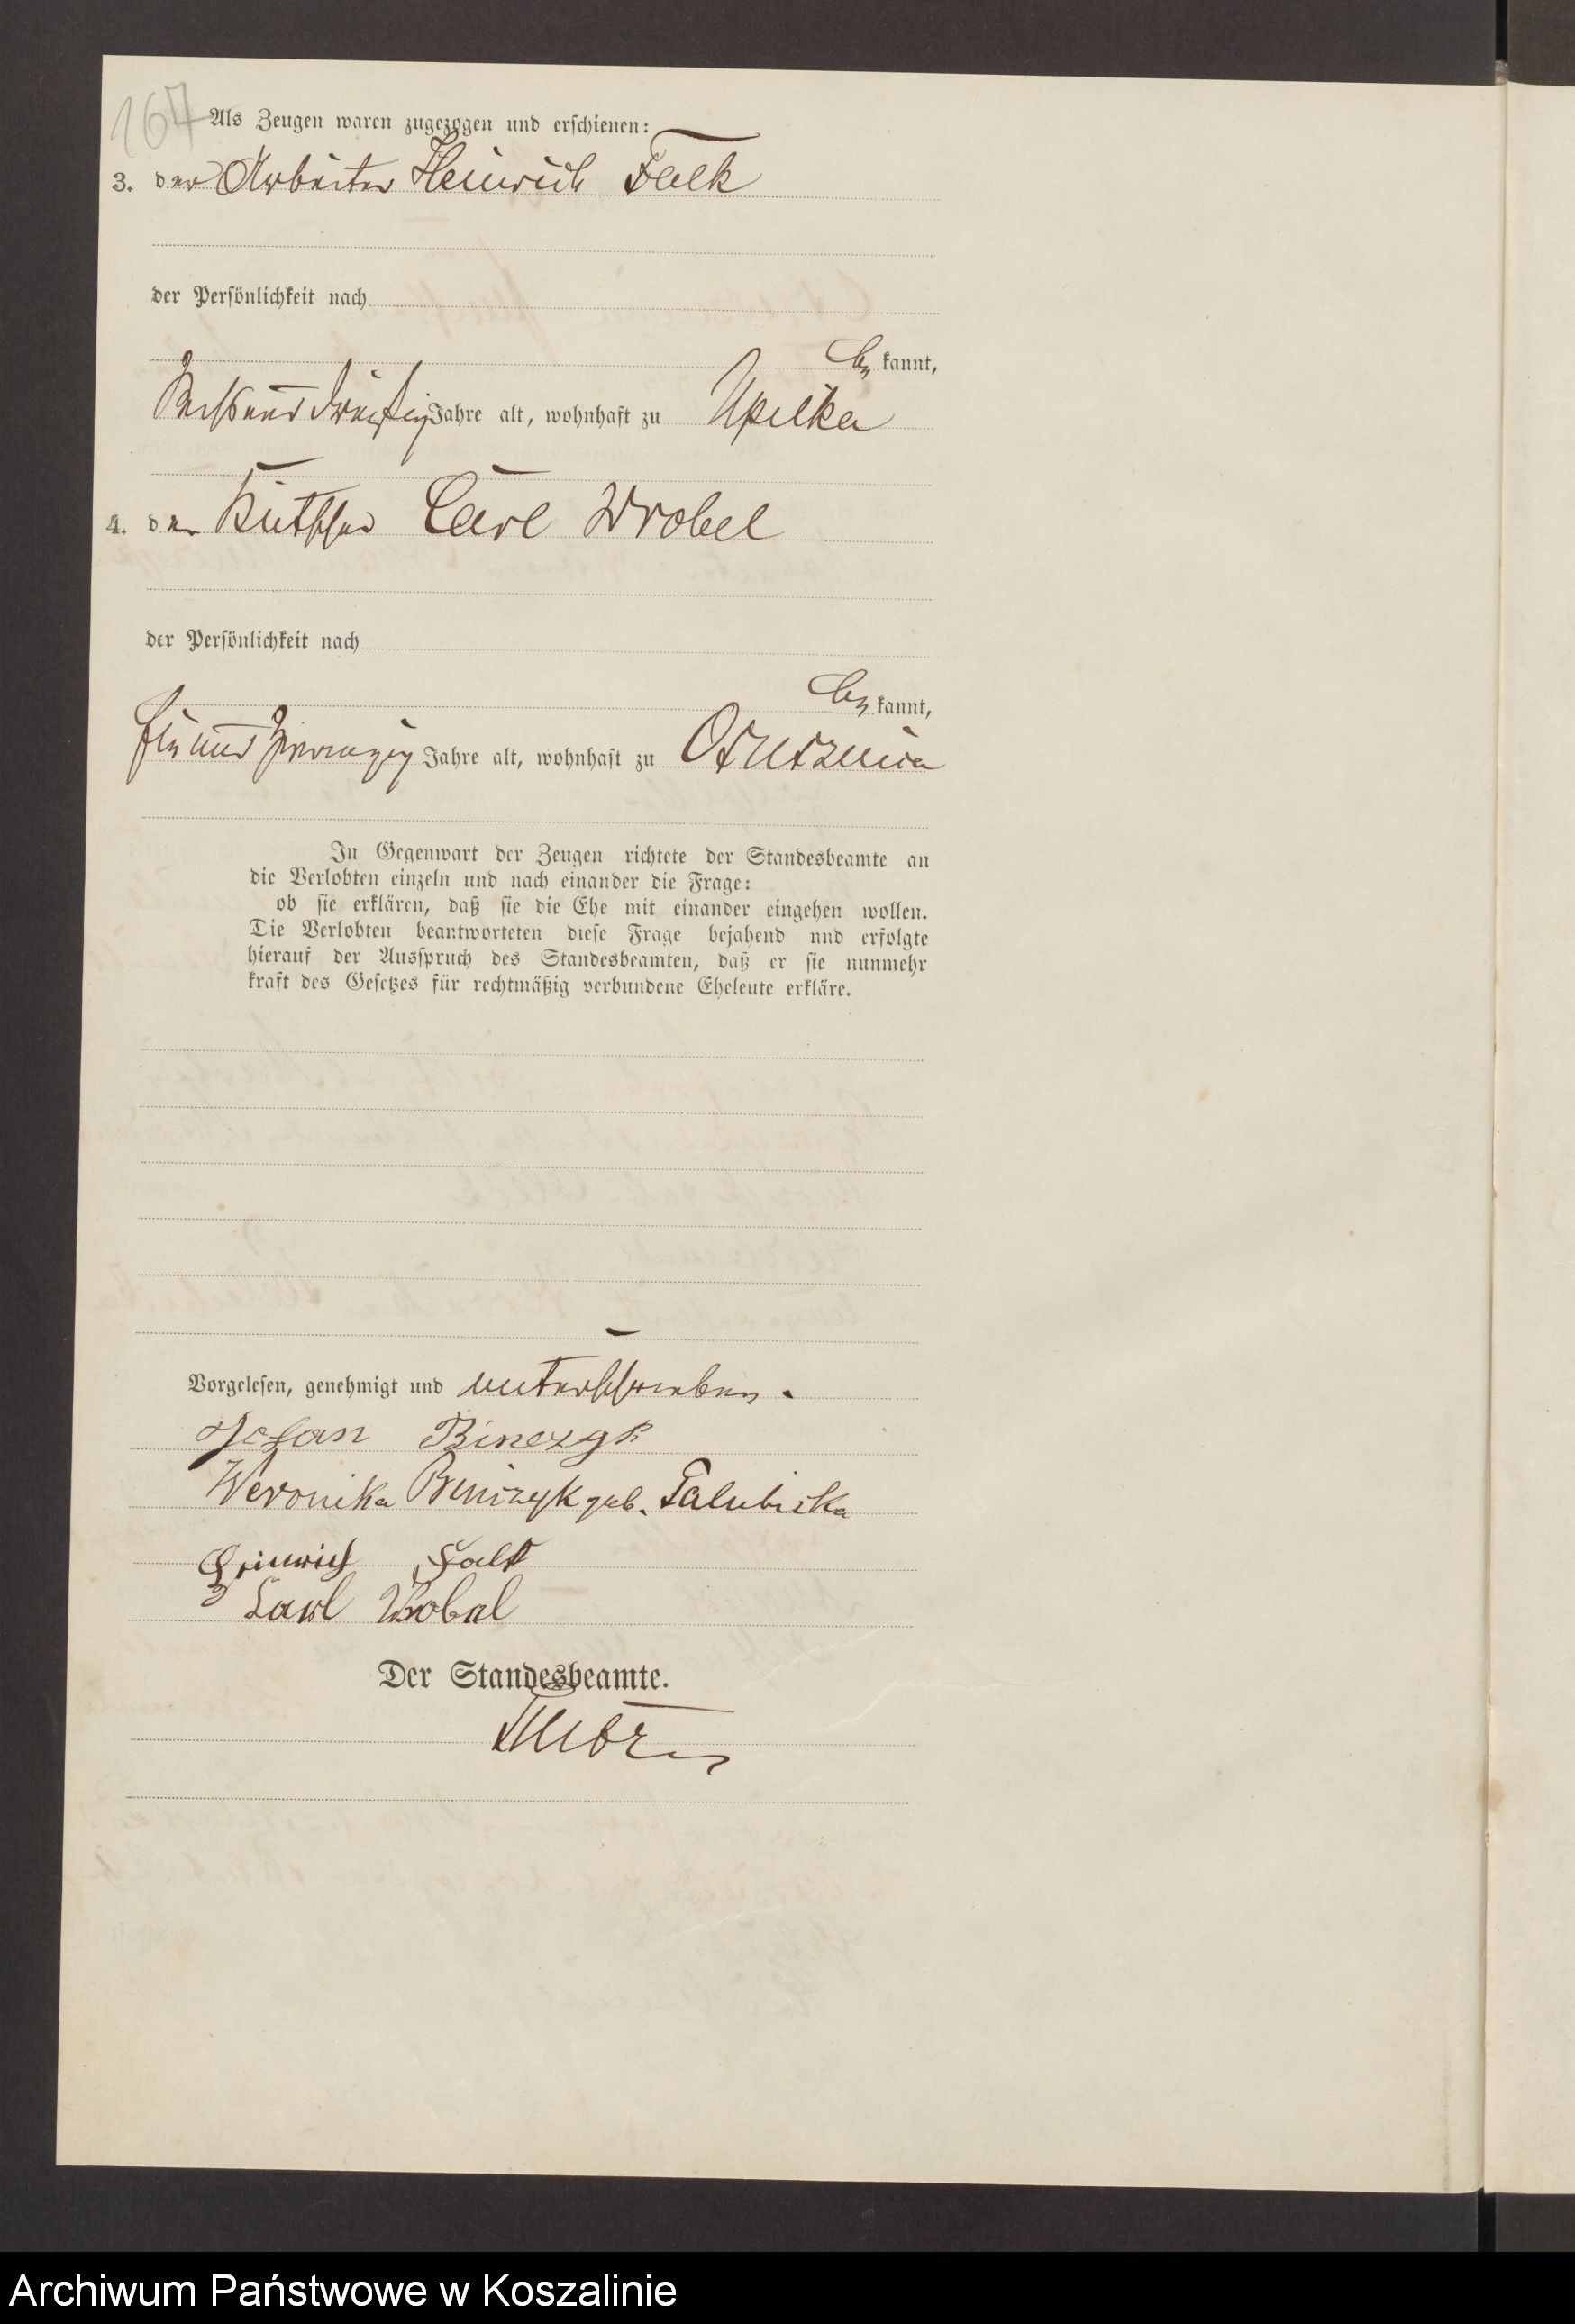 167
Als Zeugen waren zugezogen und erschienen:
3. der Arbeiter Heinrich Falk
der Persönlichkeit nach
bekannt,
Sechsunddreißig Jahre alt, wohnhaft zu Upilka
4. der Kutscher Carl Wrobel
der Persönlichkeit nach
bekannt,
Ein und zwanzig Jahre alt, wohnhaft zu Ossusznica
In Gegenwart der Zeugen richtete der Standesbeamte an
die Verlobten einzeln und nach einander die Frage:
ob sie erklären, daß sie die Ehe mit einander eingehen wollen.
Die Verlobten beantworteten diese Frage bejahend und erfolgte
hierauf der Ausspruch des Standesbeamten, daß er sie nunmehr
kraft des Gesetzes für rechtmäßig verbundene Eheleute erkläre.
Vorgelesen, genehmigt und unterschrieben.
Johan Binczyk
Weronika Binczyk geb. Palubicka
Heinrich Falk
Carl Wrobel
Der Standesbeamte.